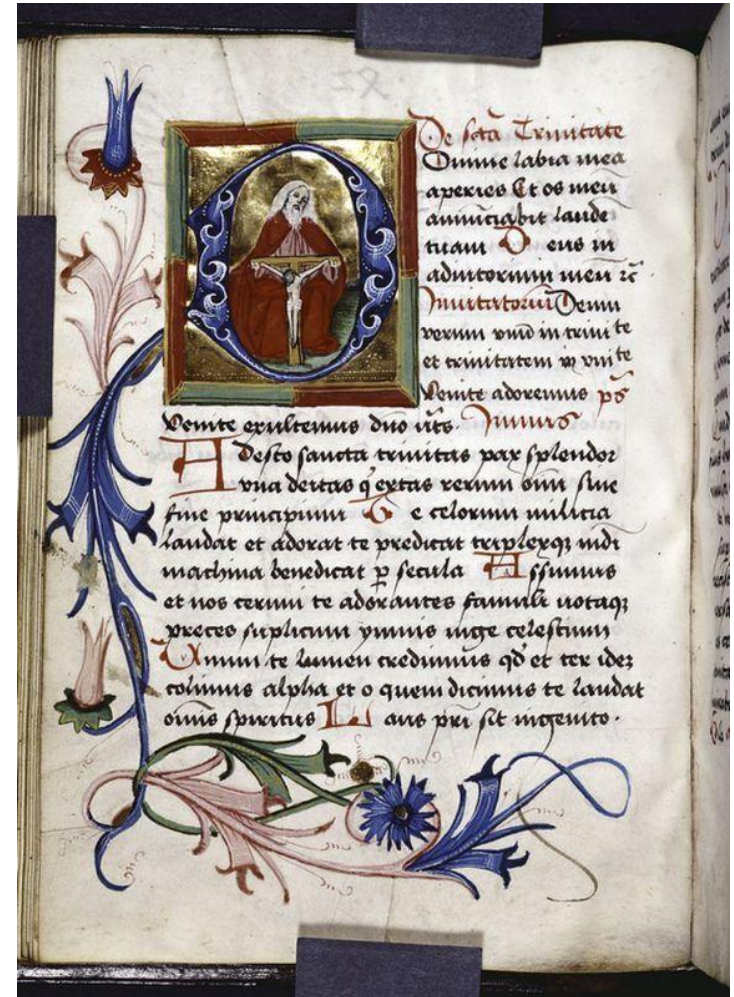 De sctā Trinitate
Domine labia mea
aperies Et os meū
annūciabit laudē
tuam Deus in
adiutorium meū ꝛc
Inuitatoriū Deum
verum vnū in trinite
et trinitatem in vnite
Venite adoremus ps
Venite exultemus dno Ymnus
Adesto sancta trinitas par splendor
vna deitas q̄ extas rerum oīm sine
fine principium Te celorum milicia
laudat et adorat te predicat triplexqꝫ mūdi
machina benedicat ꝑ secula Assumus
et nos cernui te adorantes famuli uotaqꝫ
preces suplicum ymnis iunge celestium
Unum te lumen credimus qd̄ et ter idez
colimus alpha et o quem dicimus te laudat
omīs spiritus Laus pri sit ingenito.